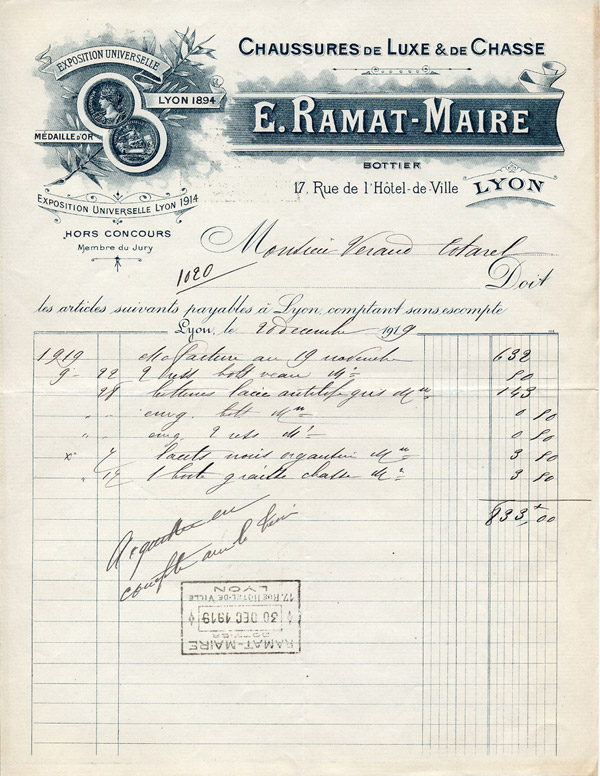 EXPOSITION UNIVERSELLE
LYON 1894
MÉDAILLE D'OR
EXPOSITION UNIVERSELLE LYON 1914
HORS CONCOURS
Membre du Jury
CHAUSSURES DE LUXE & DE CHASSE
E. RAMAT-MAIRE
BOTTIER
17, Rue de l'Hôtel-de-Ville LYON
Monsieur
1020
Doit
les articles suivants payables à Lyon, comptant sans escompte
Lyon, le 20 decembre 1919
1919 facture au 19 novembre 632
9 22 2 ress bott veau 50
28 bottines lacée antilope gris 143
" " bott 0 80
" " 2 ress 0 80
7 lacets noirs 3 80
14 1 boite graisse chasse 3 80
833,00
RAMAT-MAIRE
BOTTIER
30 DEC 1919
17, RUE HÔTEL-DE-VILLE
LYON